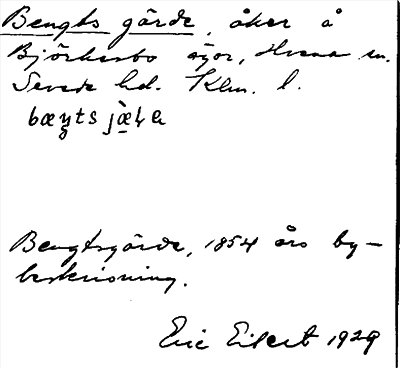 Bengts gärde, åker å
Björkesbo ägor, Hvena sn.
Sevede hd. Klm. l.
bæŋts jæ̀ɖɐ
Bengtsgärde, 1854 års by-
beskrivning.
Eric Eilert 1929